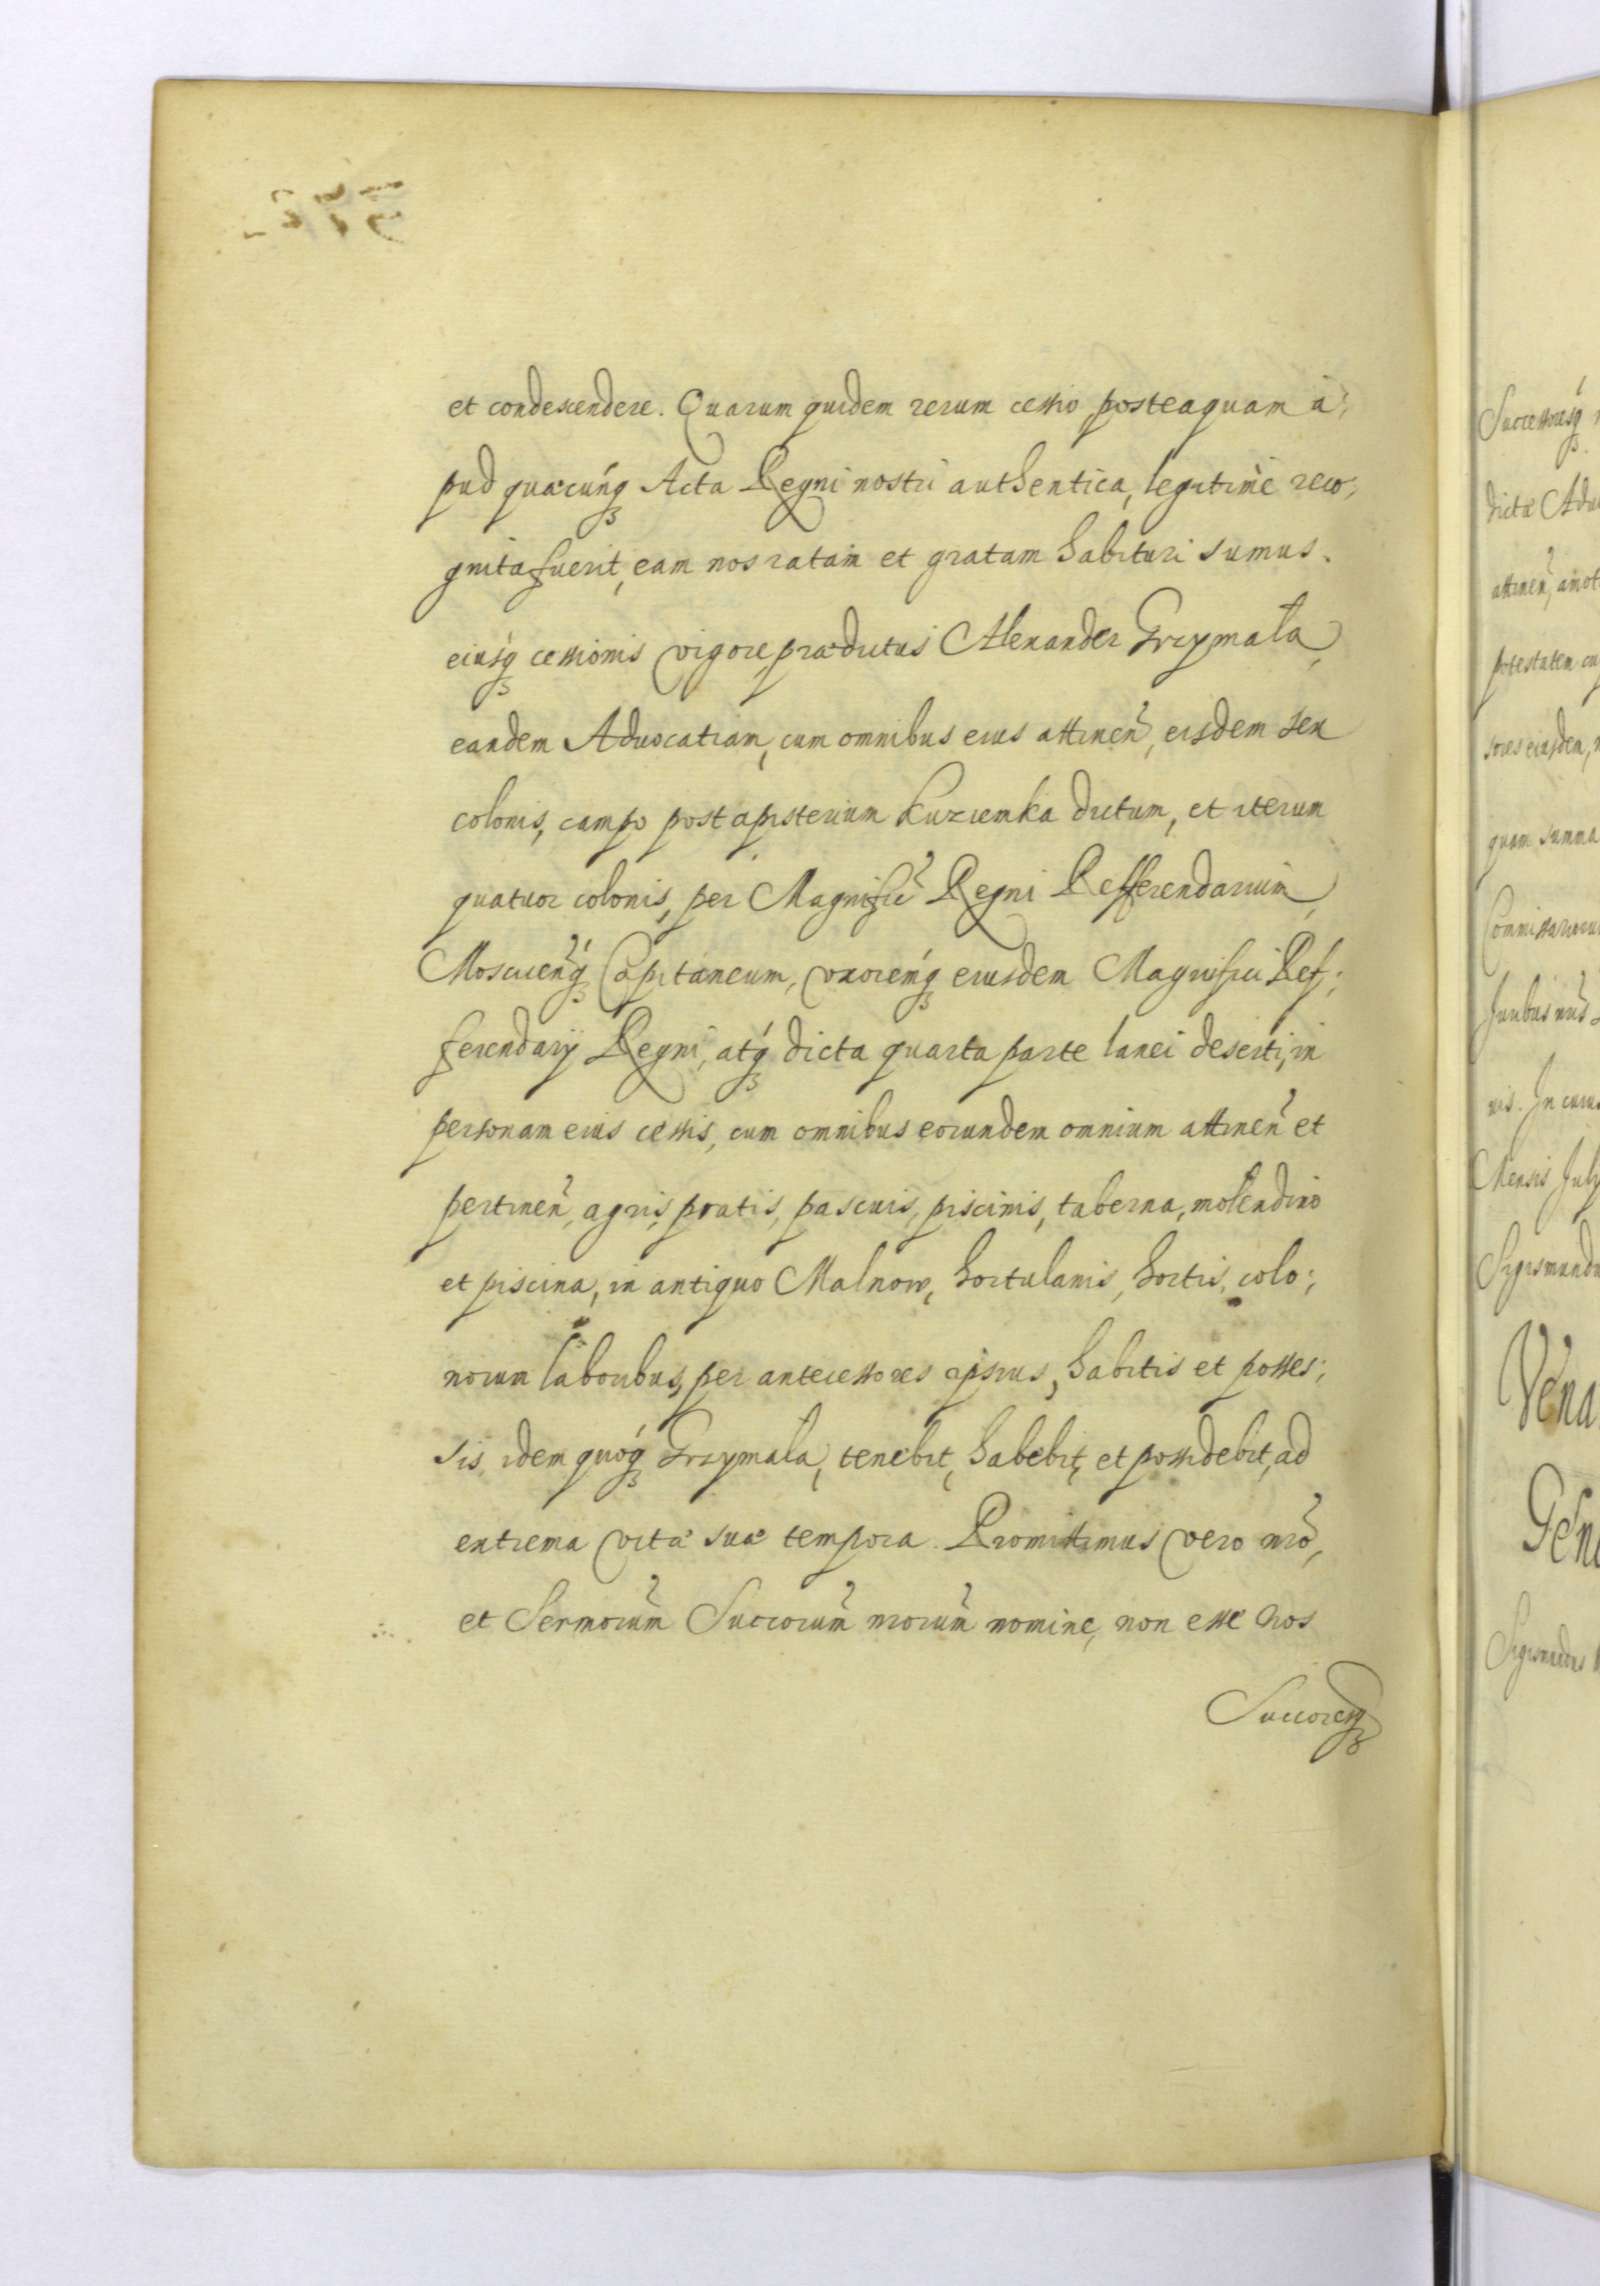 et condescendere. Quarum quidem rerum cessio, posteaquam a;
pud quæcunq́ꝫ Acta Regni nostri authentica, legitimè reco;
gnita fuerit, eam nos ratam et gratam habituri sumus.
eiusq́ꝫ cessionis vigore, prædictus Alexander Grzymala,
eandem Advocatiam, cum omnibus eius attinen̄, eisdem sex
colonis, campo post apisterium Kuzienka dictum, et iterum
quatuor colonis, per Magnificū Regni Refferendarium,
Moscicen̄q́ꝫ Capitaneum, vxoremq́ꝫ eiusdem Magnifici Ref;
ferendarij Regni, atq́ꝫ dicta quarta parte lanei deserti, in
personam eius cessis, cum omnibus eorundem omnium attinen̄ et
pertinen̄, agris, pratis, pascuis, piscinis, taberna, molendino
et piscina, in antiquo Malnow, hortulanis, hortis, colo;
norum laboribus, per antecessores ipsius, habitis et posses;
sis, idem quoq́ꝫ Grzymala, tenebit, habebit, et possidebit, ad
extrema vitæ suæ tempora. Promittimus vero nr̄o,
et Sermorum̄ Succorum̄ nrorum̄ nomine, non esse nos
Succoresqꝫ
Successoresq́ꝫ
dictæ
attinen̄,
potestatem
quam summa
Juribus nr̄is
nis. In cuius
Mensis July